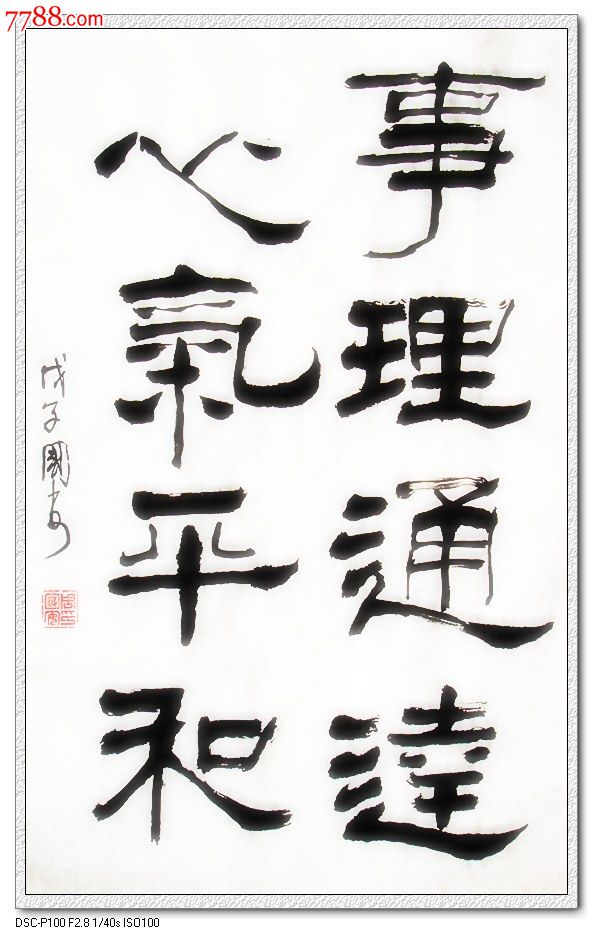 7788.com
事理通達
心氣平和
戊子國安
DSC-P100 F2.8 1/40s ISO100